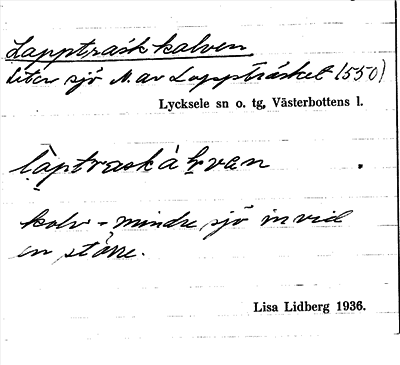 Lappträskkalven
liten sjö N. av Lappträsket (550)
Lycksele sn o. tg, Västerbottens l.
kalv - mindre sjö invid
en större.
Lisa Lidberg 1936.